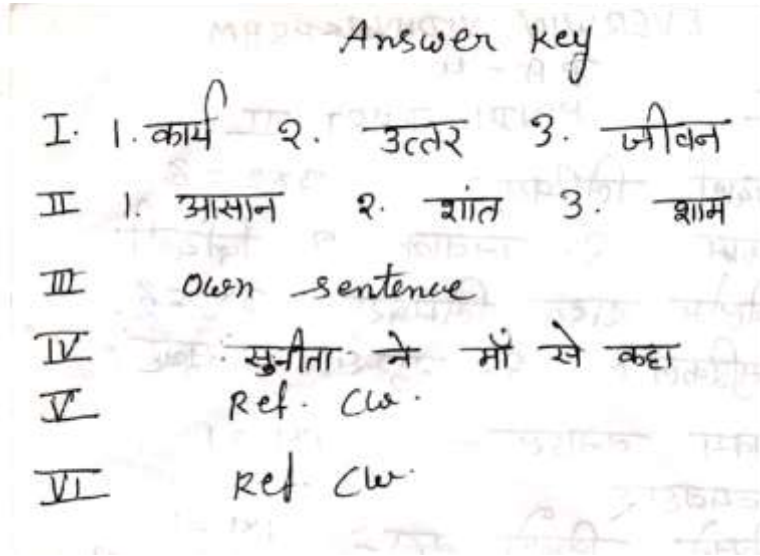 Answer key
I. 1. कार्य २. उत्तर ३. जीवन
II 1. आसान २. शांत ३. शाम
III own sentence
IV सुनीता ने माँ से कहा
V Ref. Cw.
VI Ref Cw.